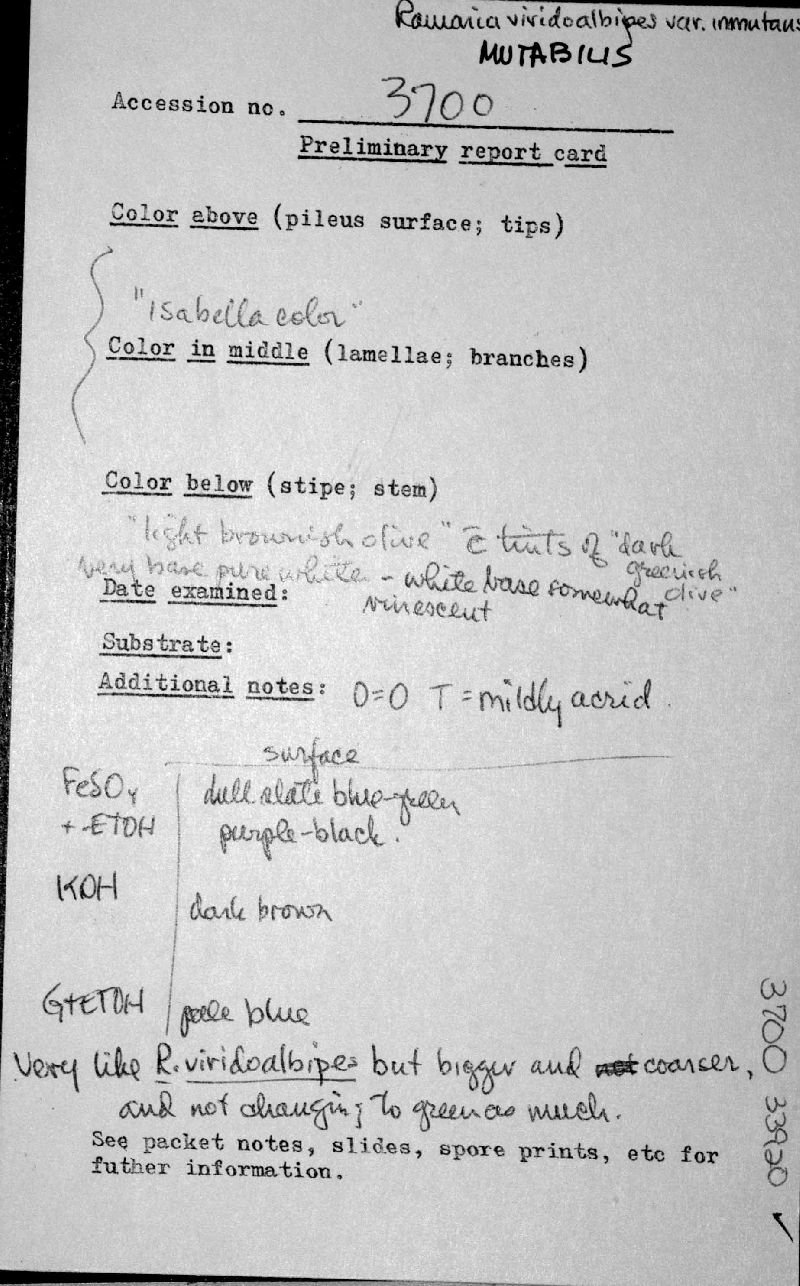 Ramaria viridoalbipes var. inmutans
MUTABILIS
Accession no. 3700
Preliminary report card
Color above (pileus surface; tips)
"Isabella color"
Color in middle (lamellae; branches)
Color below (stipe; stem)
"light brownish olive" c̄ tints of "dark greenish olive"
very base pure white - white base somewhat
vinescent
Date examined:
Substrate:
Additional notes: O=O T = mildly acrid.
surface
FeSO4 dull slate blue-green
+ -ETOH purple-black.
KOH dark brown
G+ETOH pale blue
Very like R. viridoalbipes but bigger and not coarser,
and not changing to green as much.
See packet notes, slides, spore prints, etc for
futher information.
3700 33920 ✓